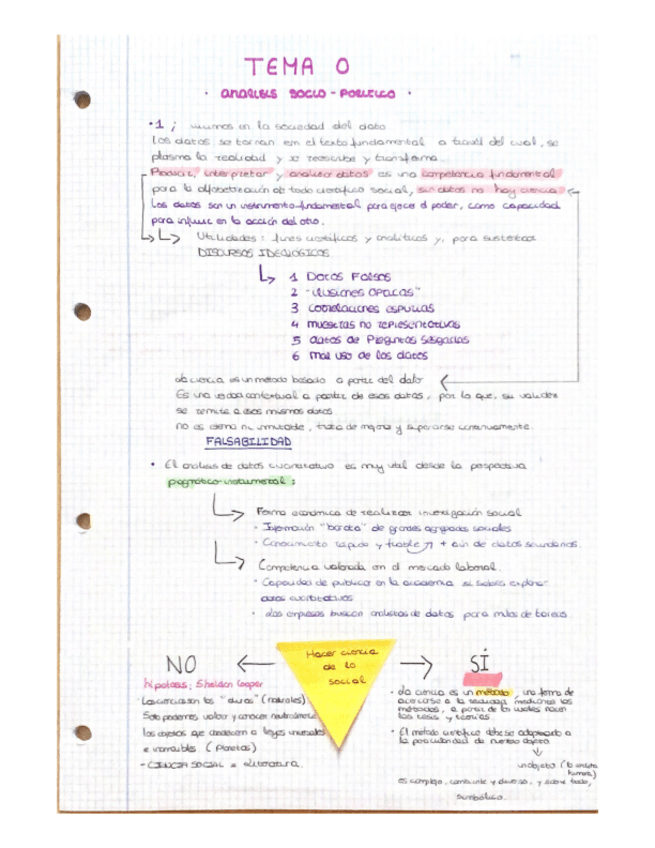 TEMA 0
· ANÁLISIS SOCIO-POLÍTICO ·
·1 ; vivimos en la sociedad del dato
Los datos se tornan em el texto fundamental a través del cual, se
plasma la realidad y se reescribe y transforma.
Producir, interpretar y analizar datos es una competencia fundamental
para la alfabetización de todo científico social, sin datos no hay ciencia
Los datos son un instrumento fundamental para ejercer el poder, como capacidad
para influir en la acción del otro.
Utilidades: fines científicos y analíticos y, para sustentar
DISCURSOS IDEOLÓGICOS
1 Datos Falsos
2 "ilusiones ópticas"
3 correlaciones espurias
4 muestras no representativas
5 datos de Preguntas sesgadas
6 mal uso de los datos
La ciencia es un método basado a partir del dato
Es una verdad contextual a partir de esos datos, por lo que, su validez
se remite a esos mismos datos.
no es eterna ni inmutable, trata de mejorar y superarse continuamente.
FALSABILIDAD
· El análisis de datos cuantitativo es muy útil desde la perspectiva
pragmático-instrumental:
Forma económica de realizar investigación social
· Información "barata" de grandes agregados sociales
· Conocimiento rápido y fiable + aún de datos secundarios.
Competencia valorada en el mercado laboral.
· Capacidad de publicar en la academia si sabes explotar
datos cuantitativos
· Las empresas buscan analistas de datos para miles de tareas
Hacer ciencia
de lo
social
NO
hipótesis; Sheldon Cooper
· Las ciencias son las "duras" (naturales)
Solo podemos valorar y conocer neutralmente
los objetos que obedecen a leyes universales
e invariables (Planetas)
- CIENCIA SOCIAL = Literatura.
SÍ
· La ciencia es un método, una forma de
acercarse a la realidad mediante los
métodos, a partir de los cuales nacen
las tesis y teorías
· El método científico debe adaptarse a
la particularidad de nuestro objeto
un objeto (la acción
humana)
es complejo, cambiante y diverso, y sobre todo,
simbólico.